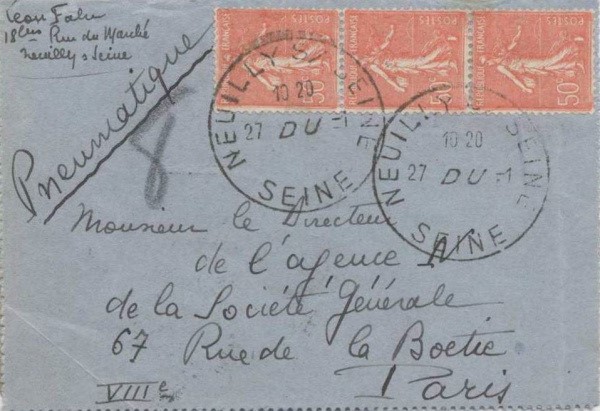 Léon
18 bis Rue du Marché
Neuilly s Seine
Pneumatique
8
POSTES
POSTES
POSTES
REPUBLIQUE FRANÇAISE
50
50
50
NEUILLY S/ SEINE
10 20
27 DU -1
SEINE
NEUILLY S/ SEINE
10 20
27 DU -1
SEINE
Monsieur le Directeur
de l'agence
de la Société Générale
67 Rue de la Boetie
VIIIe
Paris